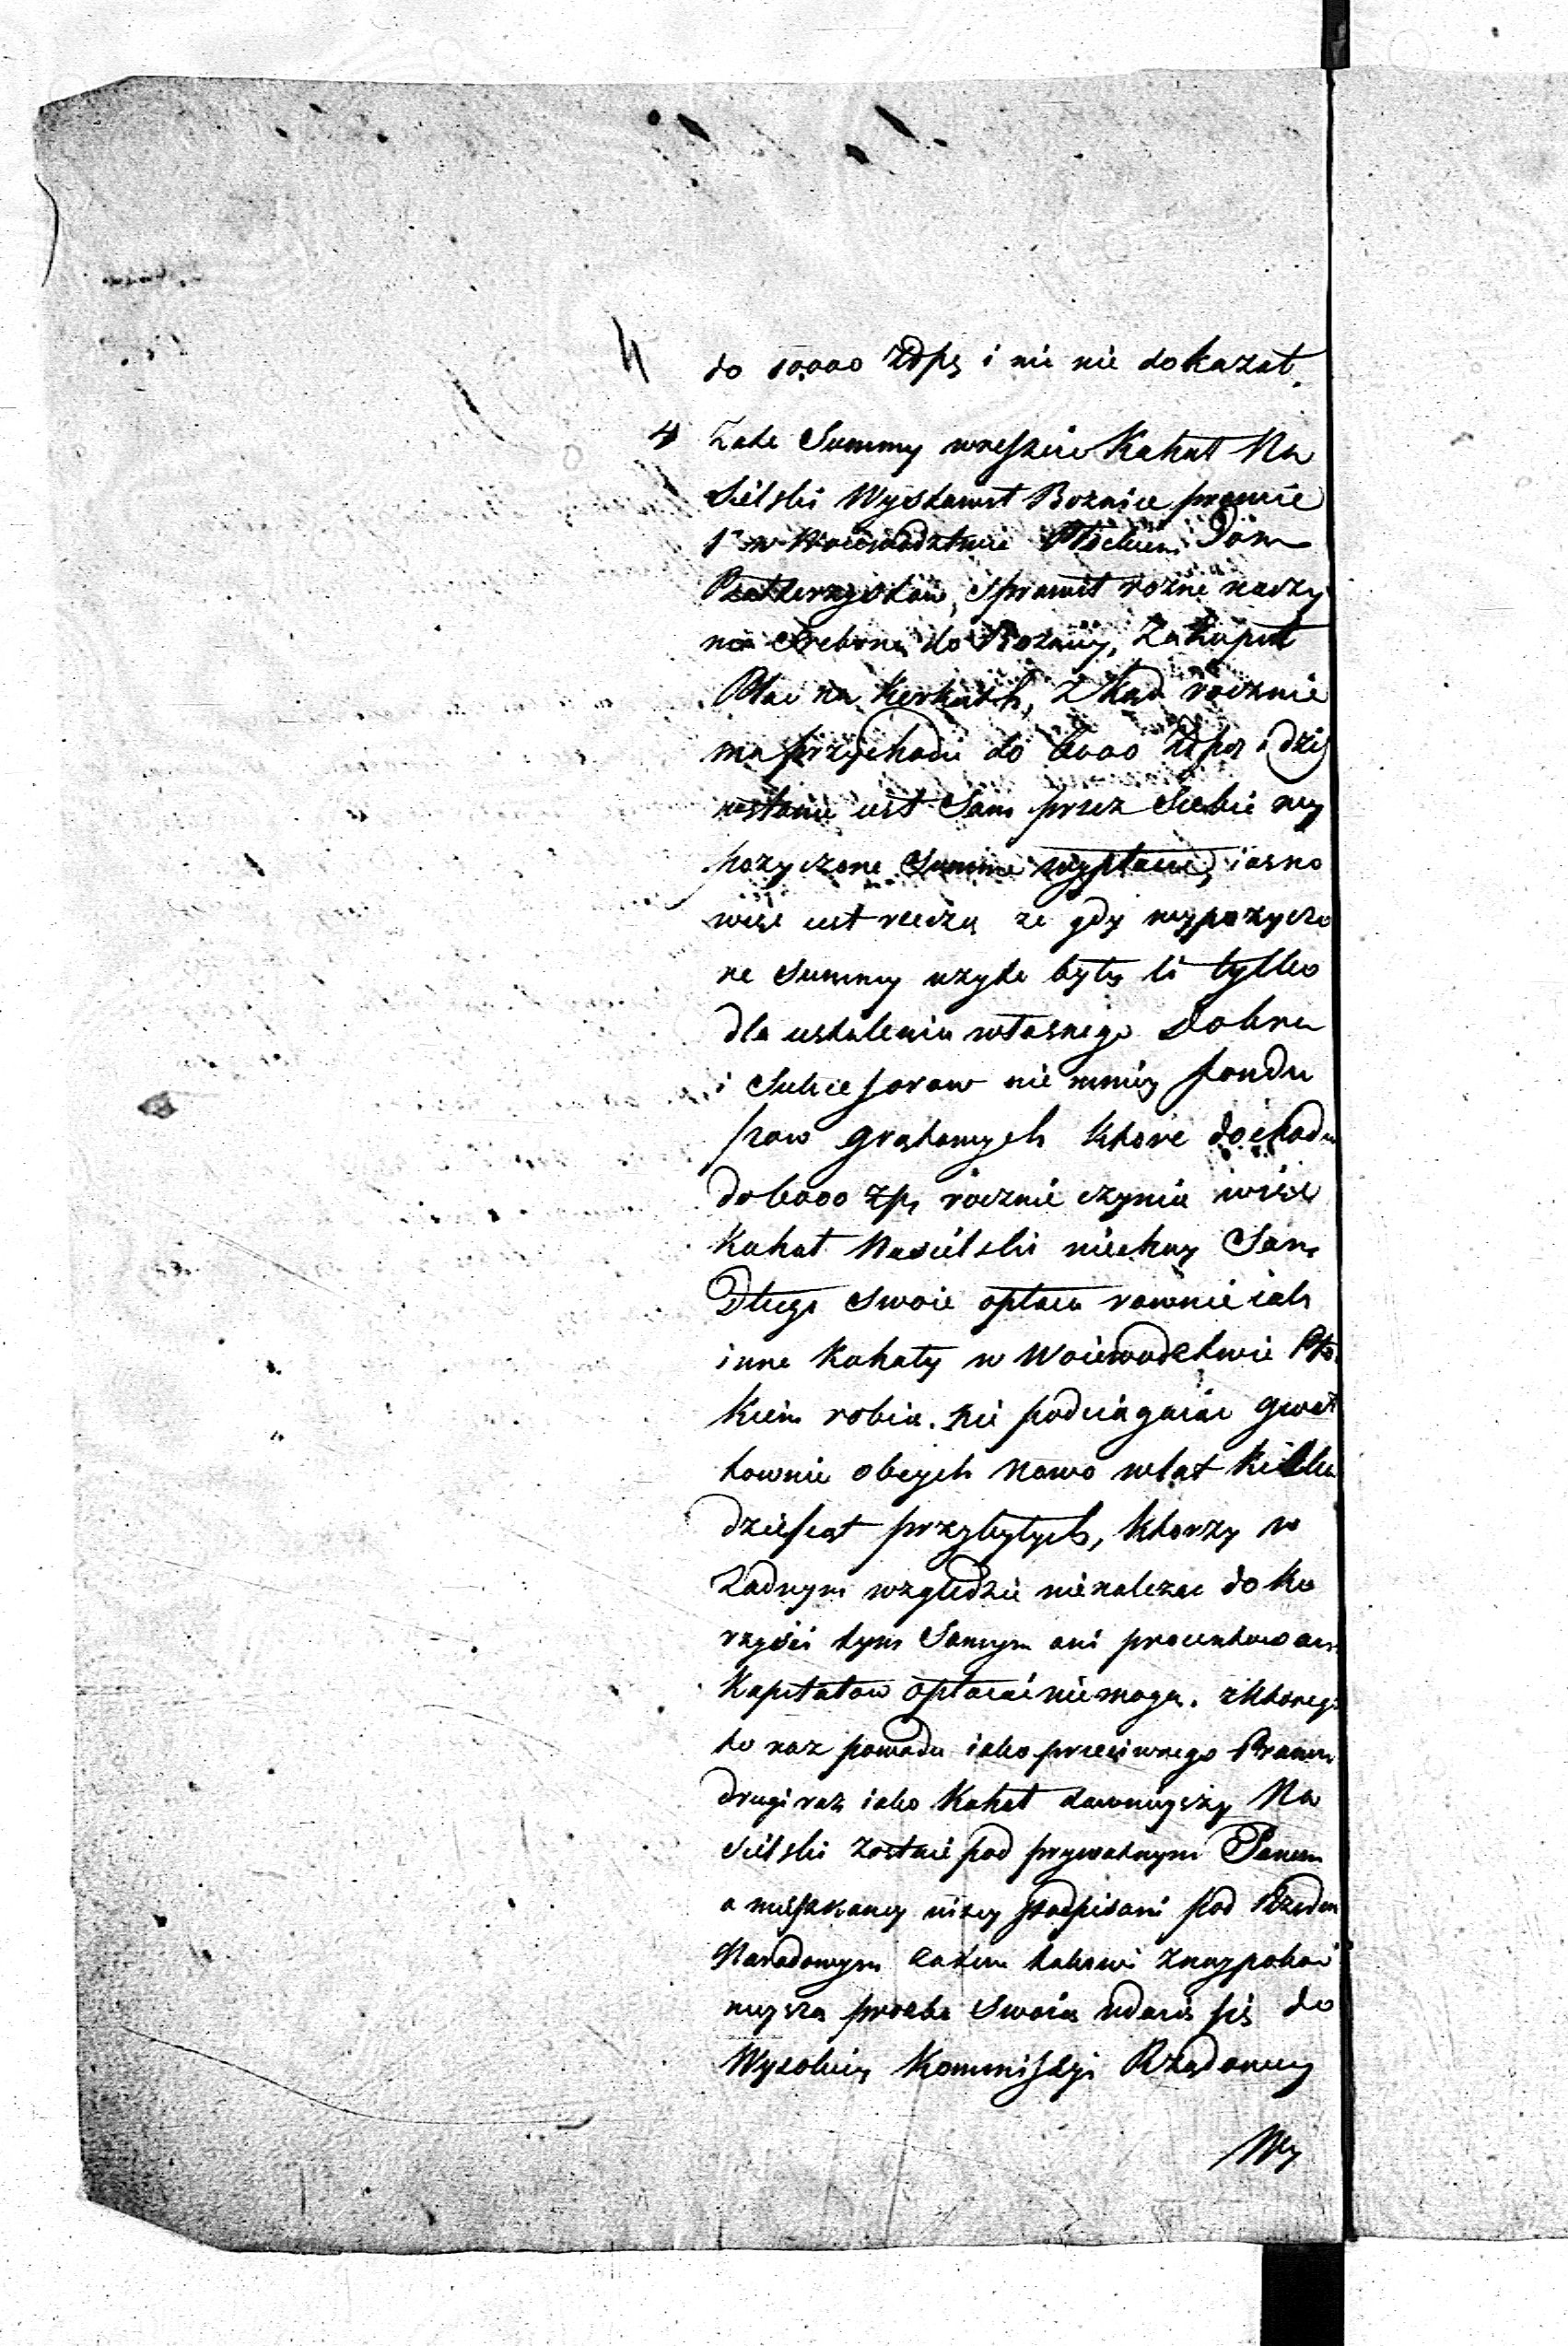 do 10,000 Złps i nic nie dokazał.
4 Za te Summy wreszcie Kahał Na
sielski Wystawił Boznice prawie
1. w Woiewodztwie Płockim Dom
sprawił rożne naczy
nia srebrne do Boznicy, Zakupił
Plac na Kerkuth, Zkąd rocznie
ma przychodu do 6000 Złps i dziś
w stanie iest Sam przez Siebie wy
pozyczone Summe wypłacić, iasno
więc iest rzeczą ze gdy wypozyczo
ne Summy uzyte były li tylko
dla ustalenia własnego Dobra
i Sukcessorow nie mniey fundu
szow gruntowych ktore dochodu
do 6000 zps rocznie czynią więc
Kahał Nasielski niechay Sam
Długi Swoie opłaca rownie iak
inne Kahały w Woiewodztwie Pło
kiem robią. nie podciągaiąc gwał
townie obcych nowo w lat kilka
dziesiąt przybyłych, ktorzy w
zadnym względzie nienalezac do ko
rzyści tym Samym ani procentow ani
Kapitałow opłacać niemogą. z ktorego
to raz powodu iako przeciwnego Prawu
drugi raz iako Kahał dawnieyszy Na
sielski zostaie pod prywatnym Panem
a mieszkancy nizey podpisani pod Rządem
Narodowym zatem takowi z naypokor
nieyszą prozbą Swoią udaią się do
Wysokiey Kommissyi Rządowey
Wy